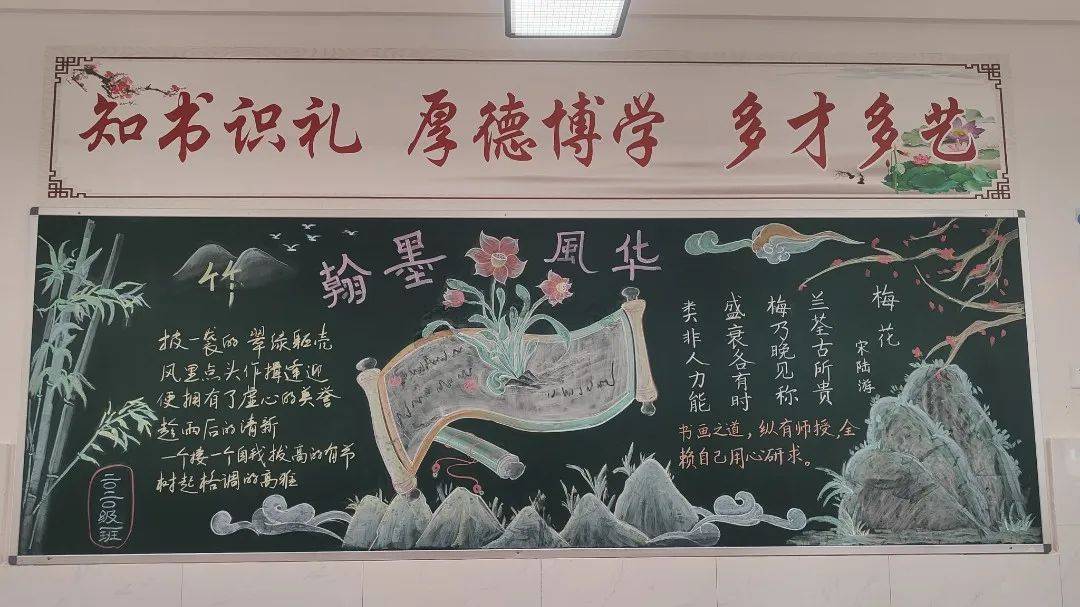 知书识礼 厚德博学 多才多艺
翰墨風华
竹
披一袭的翠绿躯壳
风里点头作揖逢迎
便拥有了虚心的美誉
趁雨后的清新
一个接一个自我拔高的有节
树起格调的高雅
级一班
梅花
宋陆游
兰荃古所贵
梅乃晚见称
盛衰各有时
类非人力能
书画之道，纵有师授，全
赖自己用心研求。